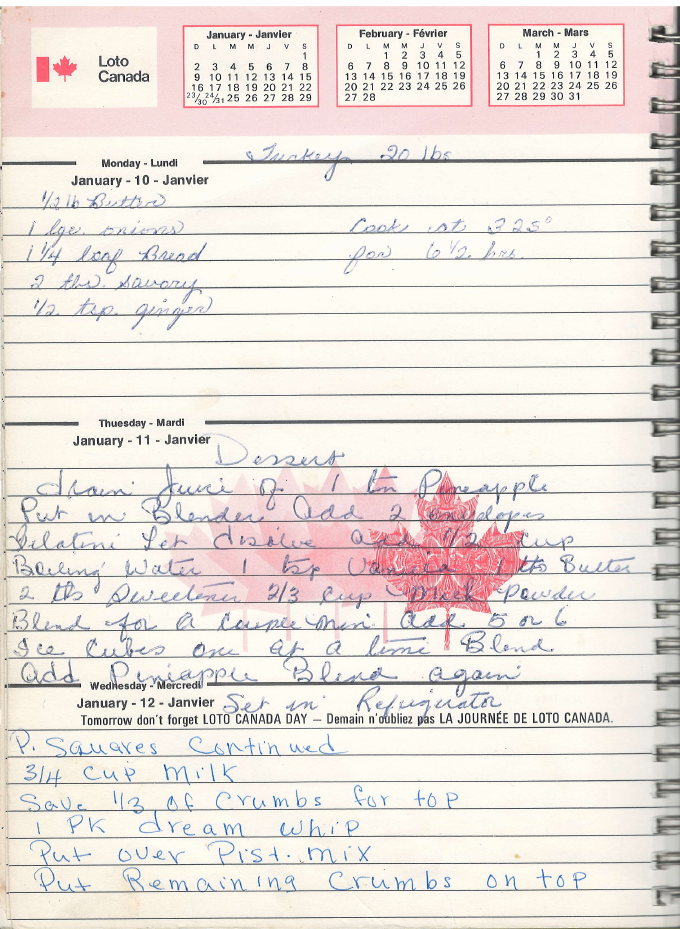 Loto
Canada
January - Janvier
D L M M J V S
1
2 3 4 5 6 7 8
9 10 11 12 13 14 15
16 17 18 19 20 21 22
23/30 24/31 25 26 27 28 29
February - Février
D L M M J V S
1 2 3 4 5
6 7 8 9 10 11 12
13 14 15 16 17 18 19
20 21 22 23 24 25 26
27 28
March - Mars
D L M M J V S
1 2 3 4 5
6 7 8 9 10 11 12
13 14 15 16 17 18 19
20 21 22 23 24 25 26
27 28 29 30 31
Turkey 20 lbs
Monday - Lundi
January - 10 - Janvier
1/2 lb Butter
1 lge. onions
Cook at 325°
1 1/4 loaf Bread
for 6 1/2 hrs.
2 tbs. savory
1/2 tsp. ginger
Thuesday - Mardi
January - 11 - Janvier
Dessert
drain Juice of 1 tin Pineapple
Put in Blender Add 2 envelopes
Gelatini Let disolve add 1/2 cup
Boiling Water 1 tsp Vanila 1 tbs Butter
2 tbs Sweetener 2/3 cup Milk Powder
Blend for a couple min add 5 or 6
Ice Cubes one at a time Blend
Add Pineapple Blend again
Wednesday - Mercredi
January - 12 - Janvier
Set in Refrigirator
Tomorrow don't forget LOTO CANADA DAY – Demain n'oubliez pas LA JOURNÉE DE LOTO CANADA.
P. Squares Continued
3/4 cup Milk
Save 1/3 of Crumbs for top
1 PK dream whip
Put over Pist. mix
Put Remaining Crumbs on top